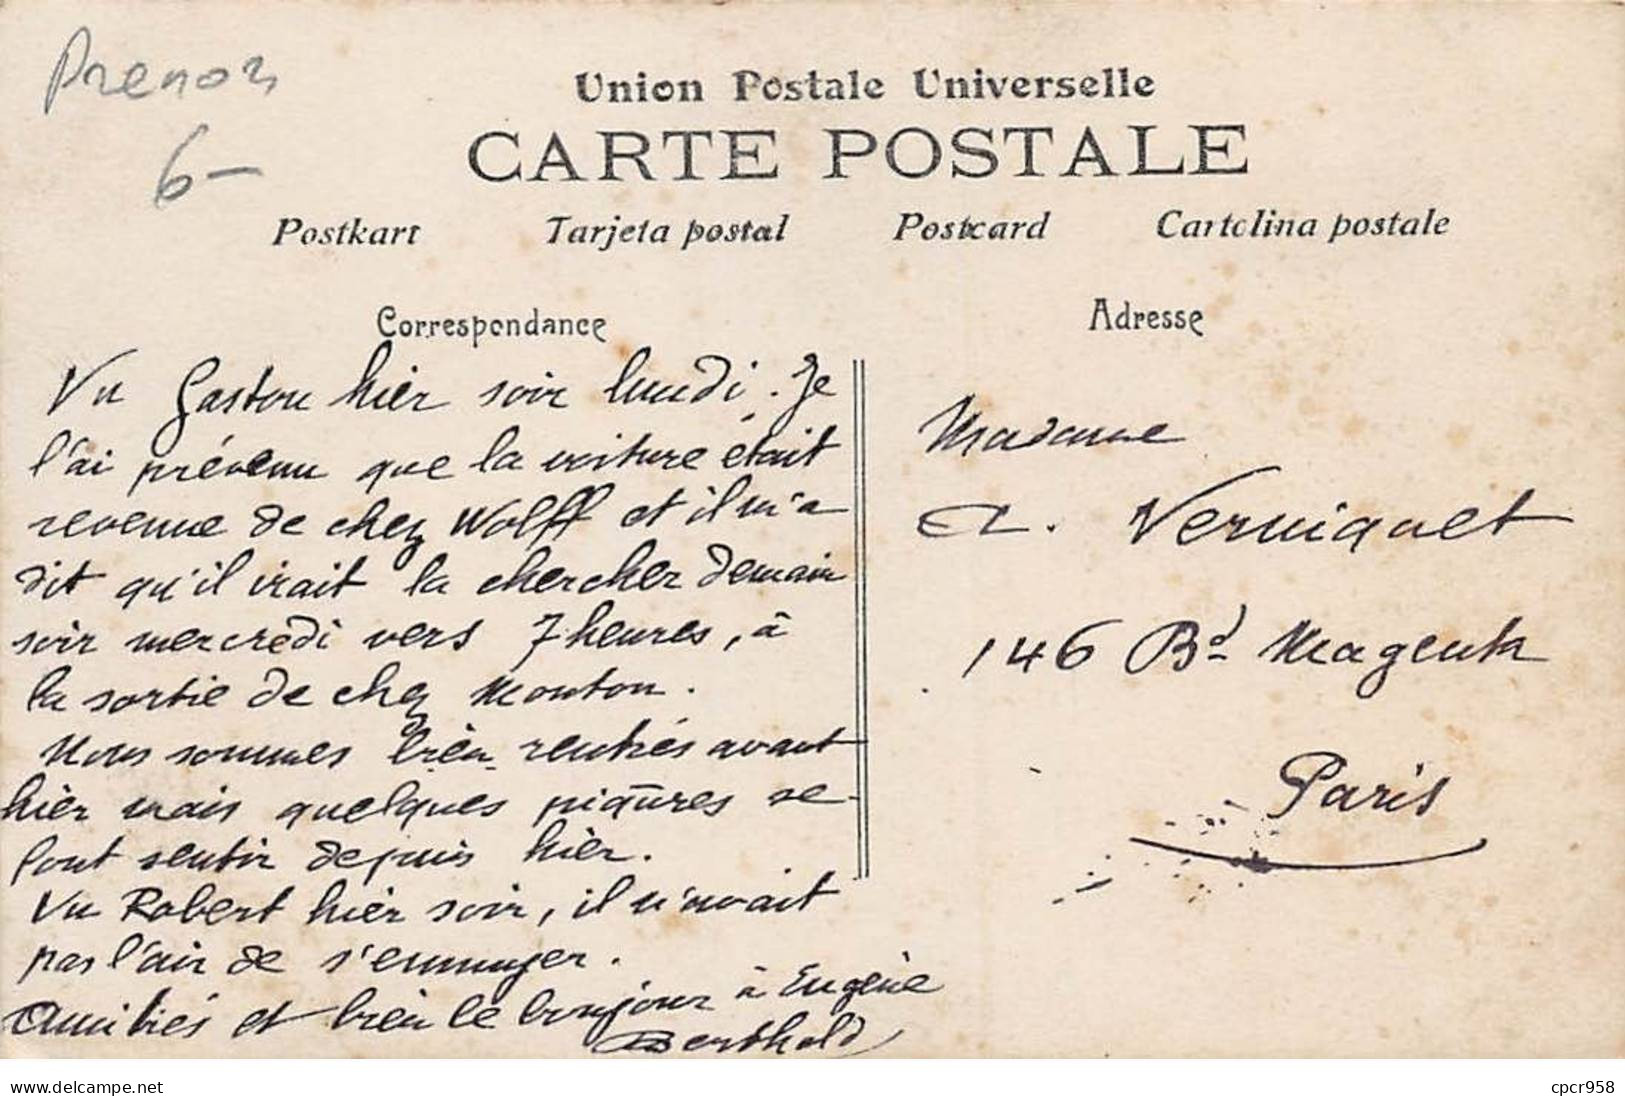 Prenom
6-
Union Postale Universelle
CARTE POSTALE
Postkart Tarjeta postal Postcard Cartolina postale
Correspondance
Vu Gaston hier soir lundi. Je
l'ai prévenu que la voiture était
revenue de chez Wolff et il m'a
dit qu'il irait la chercher demain
soir mercredi vers 7 heures, à
la sortie de chez Mouton.
Nous sommes bien rentrés avant
hier mais quelques piqûres se
font sentir depuis hier.
Vu Robert hier soir, il n'avait
pas l'air de s'ennuyer.
Amitiés et bien le bonjour à Eugénie
Berthold
Adresse
Madame
A. Verniquet
146 Bd Magenta
Paris
www.delcampe.net
cpcr958